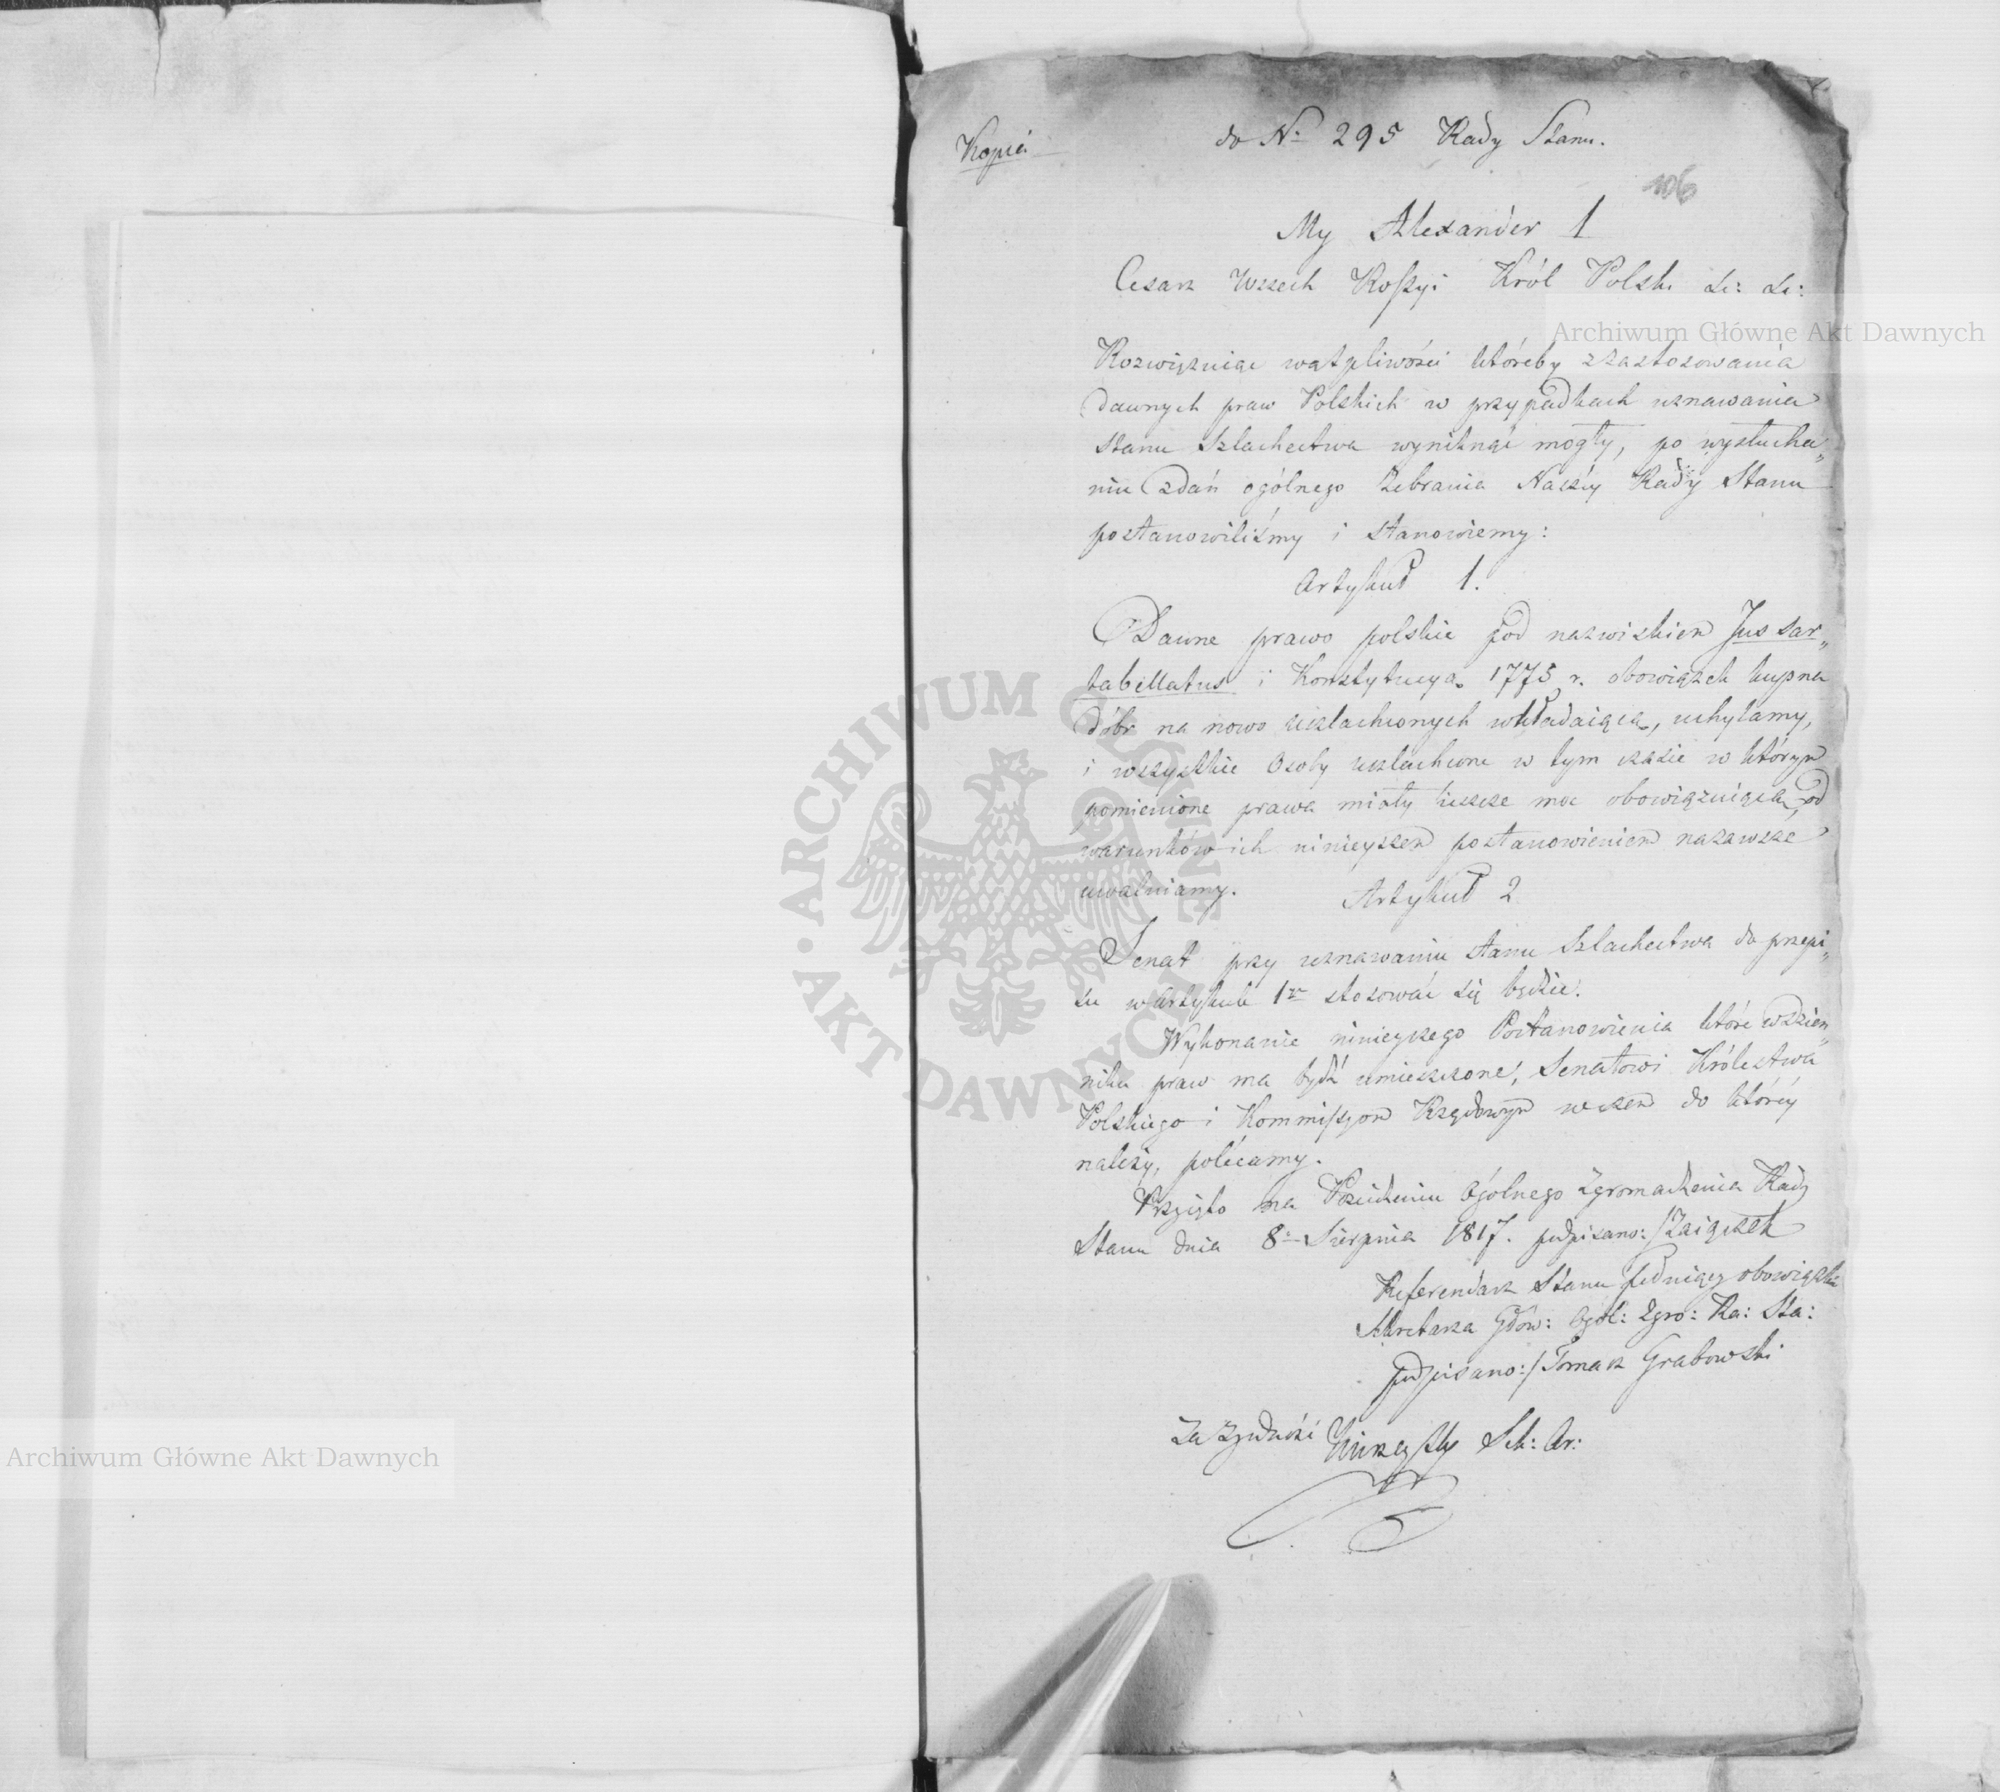 Kopia
do Nr 295 Rady Stanu.
106
My Alexander I
Cesarz Wszech Rossyi Król Polski &c: &c:
Rozwiązuiąc wątpliwości któreby z zastosowania
dawnych praw Polskich w przypadkach uznawania
stanu Szlachectwa wyniknąć mogły, po wysłucha„
niu zdań ogólnego Zebrania Naszéy Rady Stanu
postanowiliśmy i stanowiemy:
Artykuł 1.
Dawne prawo polskie pod nazwiskiem Jus scar„
tabellatus i Konstytucyą 1775 r. obowiązek kupna
dóbr na nowo uszlachconych wkładaiącą, uchylamy,
i wszystkie Osoby uszlachcone w tym czasie w którym
pomienione prawa miały ieszcze moc obowiązuiącą, od
warunków ich ninieyszem postanowieniem na zawsze
uwalniamy.
Artykuł 2
Senat przy uznawaniu stanu Szlachectwa do przepi„
su w Artykule 1m stosować się będzie.
Wykonanie ninieyszego Postanowienia które w dzien„
niku praw ma bydź umieszczone, Senatowi Królestwa
Polskiego i Kommissyom Rządowym w czem do któréy
należy, polécamy.
Przyięto na Posiedzeniu Ogólnego Zgromadzenia Rady
Stanu dnia 8o Sierpnia 1817. podpisano:/ Zaiączek
Referendarz Stanu pełniący obowiązki
Sekretarza Głów: Ogól: Zgro: Ra: Sta:
podpisano:/ Tomasz Grabowski
Za Zgodność Sek: Ar:
Archiwum Główne Akt Dawnych
Archiwum Główne Akt Dawnych
ARCHIWUM GŁÓWNE AKT DAWNYCH